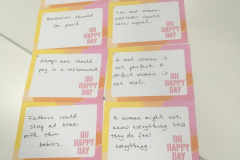 should
be paid
OH
HAPPY
DAY
men and women
should
OH
HAPPY
DAY
Always ask should
pay in a restaurant
OH
HAPPY
DAY
A real woman is
not perfect & a
perfect woman is
not real.
OH
HAPPY
DAY
Fathers could
stay at home
with their
babies.
OH
HAPPY
DAY
A woman might not
know everything
they do feel
everything.
OH
HAPPY
DAY